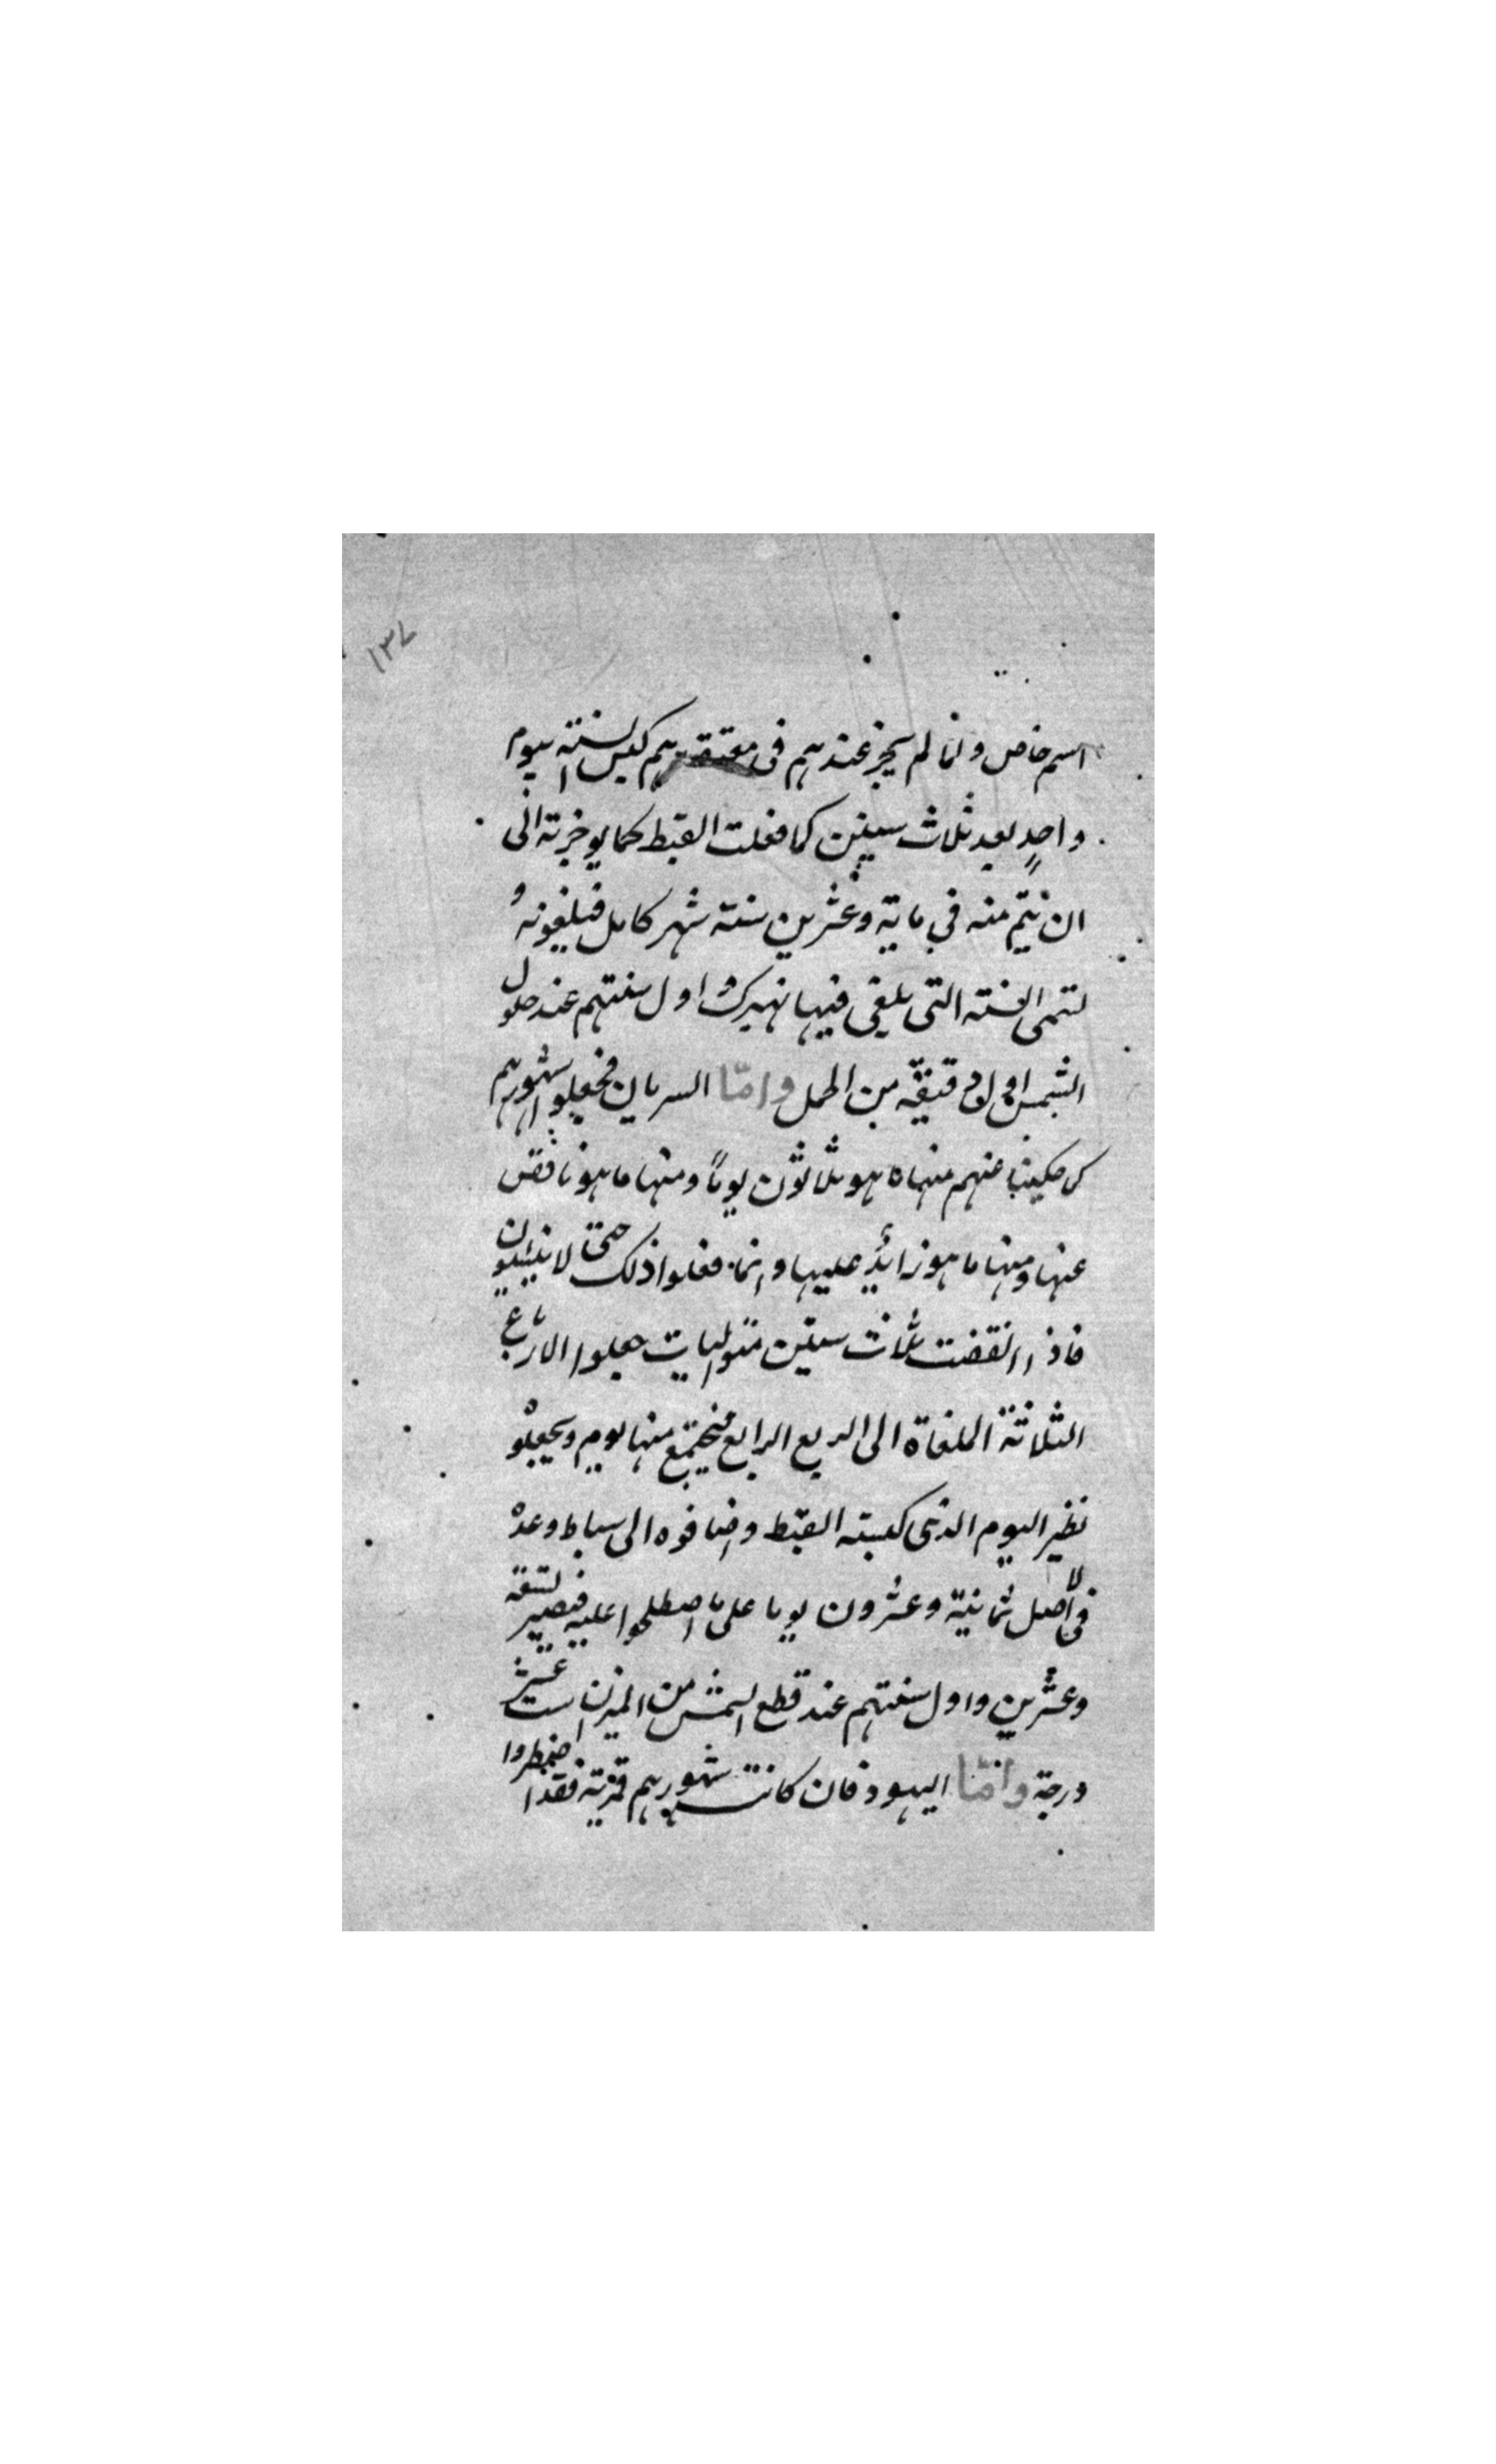 ١٣٧
اسم خاص وانما لم يجز عندهم فى معتقدهم كبس السنة بيوم
واحدٍ بعد ثلاث سنين كما فعلت القبط كما يوخرته الى
ان يتم منه في ماية وعشرين سنة شهر كامل فيلغونهُ
لتمى السنة التى يلغى فيها نهيرك واول سنتهم عند حلول
الشمس اول دقيقة من الحمل وامّا السريان فجعلوا شهورهم
منهم منها ما هو ثلاثون يوماً ومنها ما هو ناقص
عنها ومنها ما هو زائدٍ عليها وانما فعلوا ذلك حتى لا
فاذا انقضت ثلاث سنين متواليات جعلوا الارباع
الثلاثة الملغاة الى الربع الرابع فيجتمع منها يوم ويجعلو
نظير اليوم الذى كبسته القبط واضافوه الى سباط وعدهْ
فى الأصل ثمانية وعشرون يوما على ما اصطلحوا عليه فيصير تسعة
وعشرين واول سنتهم عند قطع الشمس من الميزان ست عشر
درجة وامّا اليهود فان كانت شهورهم قمرية فقد اضطروا